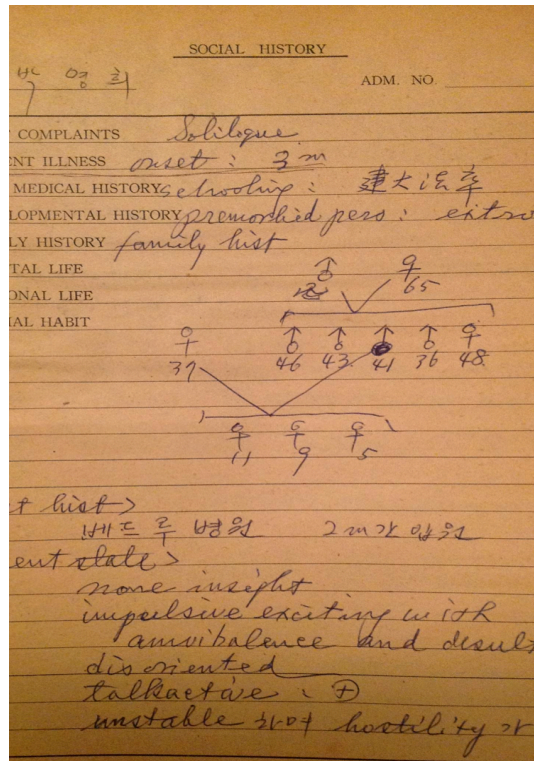 SOCIAL HISTORY
영희
ADM. NO.
COMPLAINTS Solilogue
ENT ILLNESS onset : 3 m
MEDICAL HISTORY schooling : 建大法卒
LOPMENTAL HISTORY premorbied pers : extro
LY HISTORY family hist
TAL LIFE
ONAL LIFE
IAL HABIT
♂ ♀
65
♀ ♂ ♂ ♂ ♂ ♀
37 46 43 41 36 48
♀ ♀ ♀
11 9 5
t hist>
베드루 병원 2m간 입원
ent state>
none insight
impulsive exciting with
amvibalence and desult
disoriented
talkactive : +
unstable 하며 hostility가